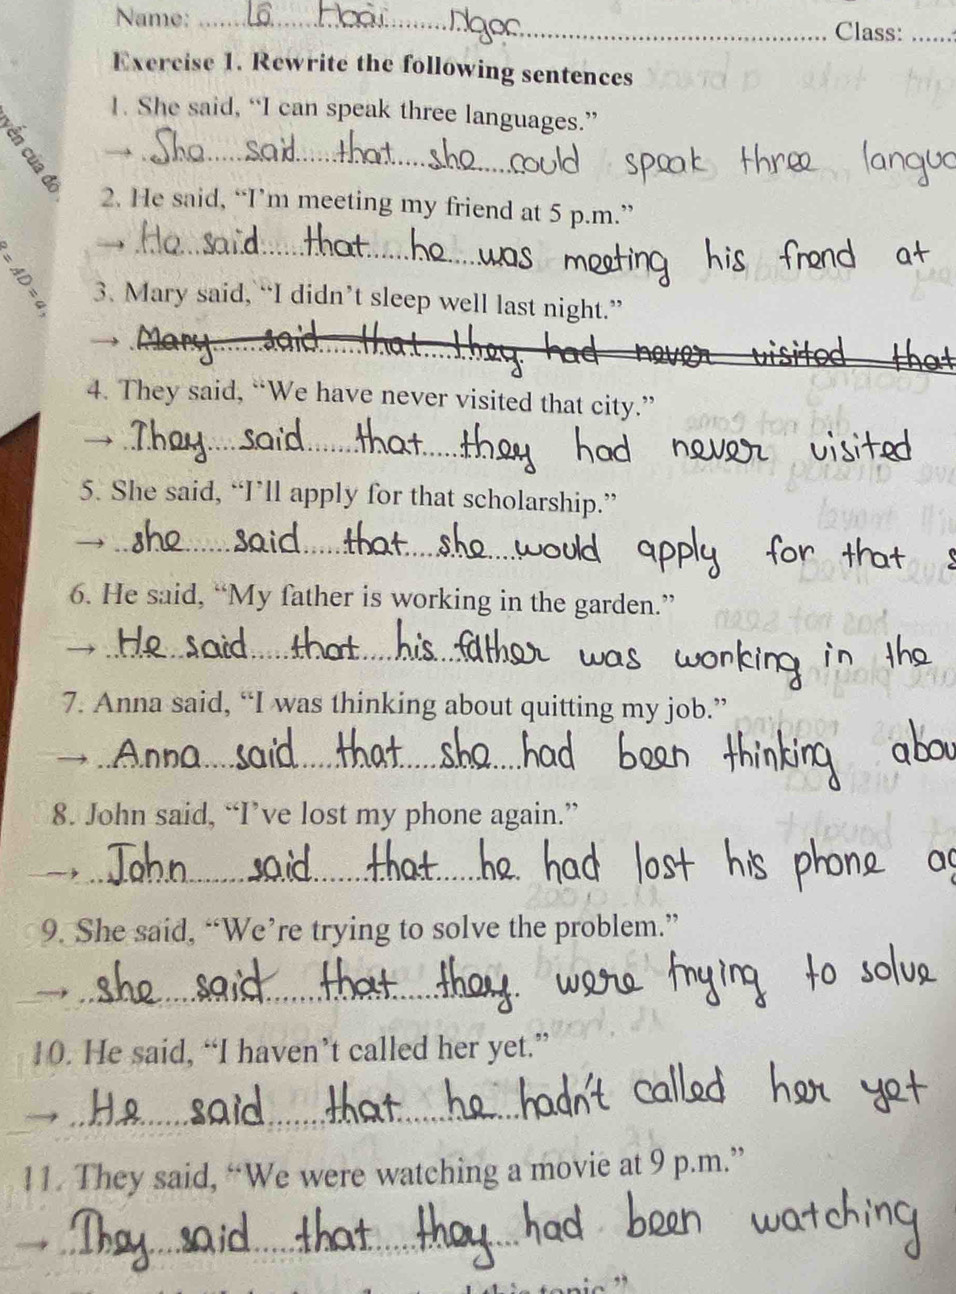 Name: Lô Hoài Ngọc Class:
Exercise 1. Rewrite the following sentences
1. She said, “I can speak three languages.”
→ She said that she could speak three langua
2. He said, “I’m meeting my friend at 5 p.m.”
→ He said that he was meeting his frend at
3. Mary said, “I didn’t sleep well last night.”
→ Mary said that they had never visited that
4. They said, “We have never visited that city.”
→ They said that they had never visited
5. She said, “I’ll apply for that scholarship.”
→ she said that she would apply for that s
6. He said, “My father is working in the garden.”
→ He said that his father was working in the
7. Anna said, “I was thinking about quitting my job.”
→ Anna said that she had been thinking abou
8. John said, “I’ve lost my phone again.”
→ John said that he had lost his phone ag
9. She said, “We’re trying to solve the problem.”
→ she said that they were trying to solve
10. He said, “I haven’t called her yet.”
→ He said that he hadn't called her yet
11. They said, “We were watching a movie at 9 p.m.”
→ They said that they had been watching
topic.”